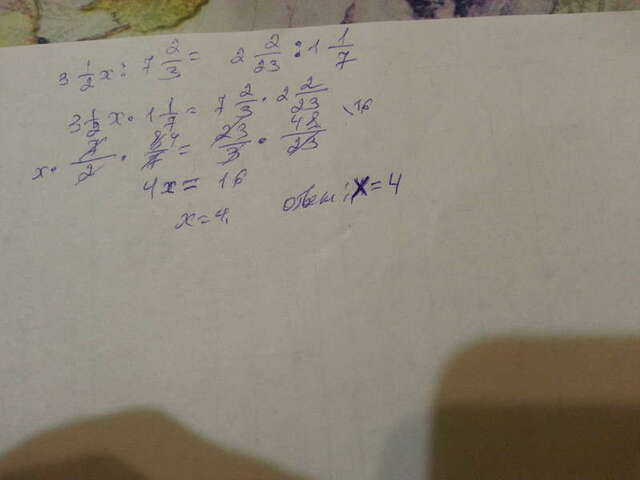 3 1/2 x : 7 2/3 = 2 2/23 : 1 1/7
3 1/2 x · 1 1/7 = 7 2/3 · 2 2/23
x · 7/2 · 8/7 4 = 23/3 · 48/23 16
4x = 16
x = 4. ответ: x = 4